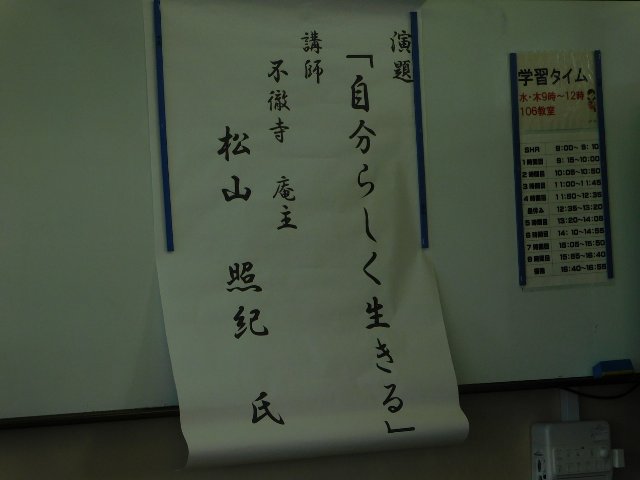 演題
「自分らしく生きる」
講師
不徹寺 庵主
松山 照紀 氏
学習タイム
水・木9時～12時
106教室
SHR 9:00～9:10
1時間目 9:15～10:00
2時間目 10:05～10:50
3時間目 11:00～11:45
4時間目 11:50～12:35
昼休み 12:35～13:20
5時間目 13:20～14:05
6時間目 14:10～14:55
7時間目 15:05～15:50
8時間目 15:55～16:40
16:40～16:55